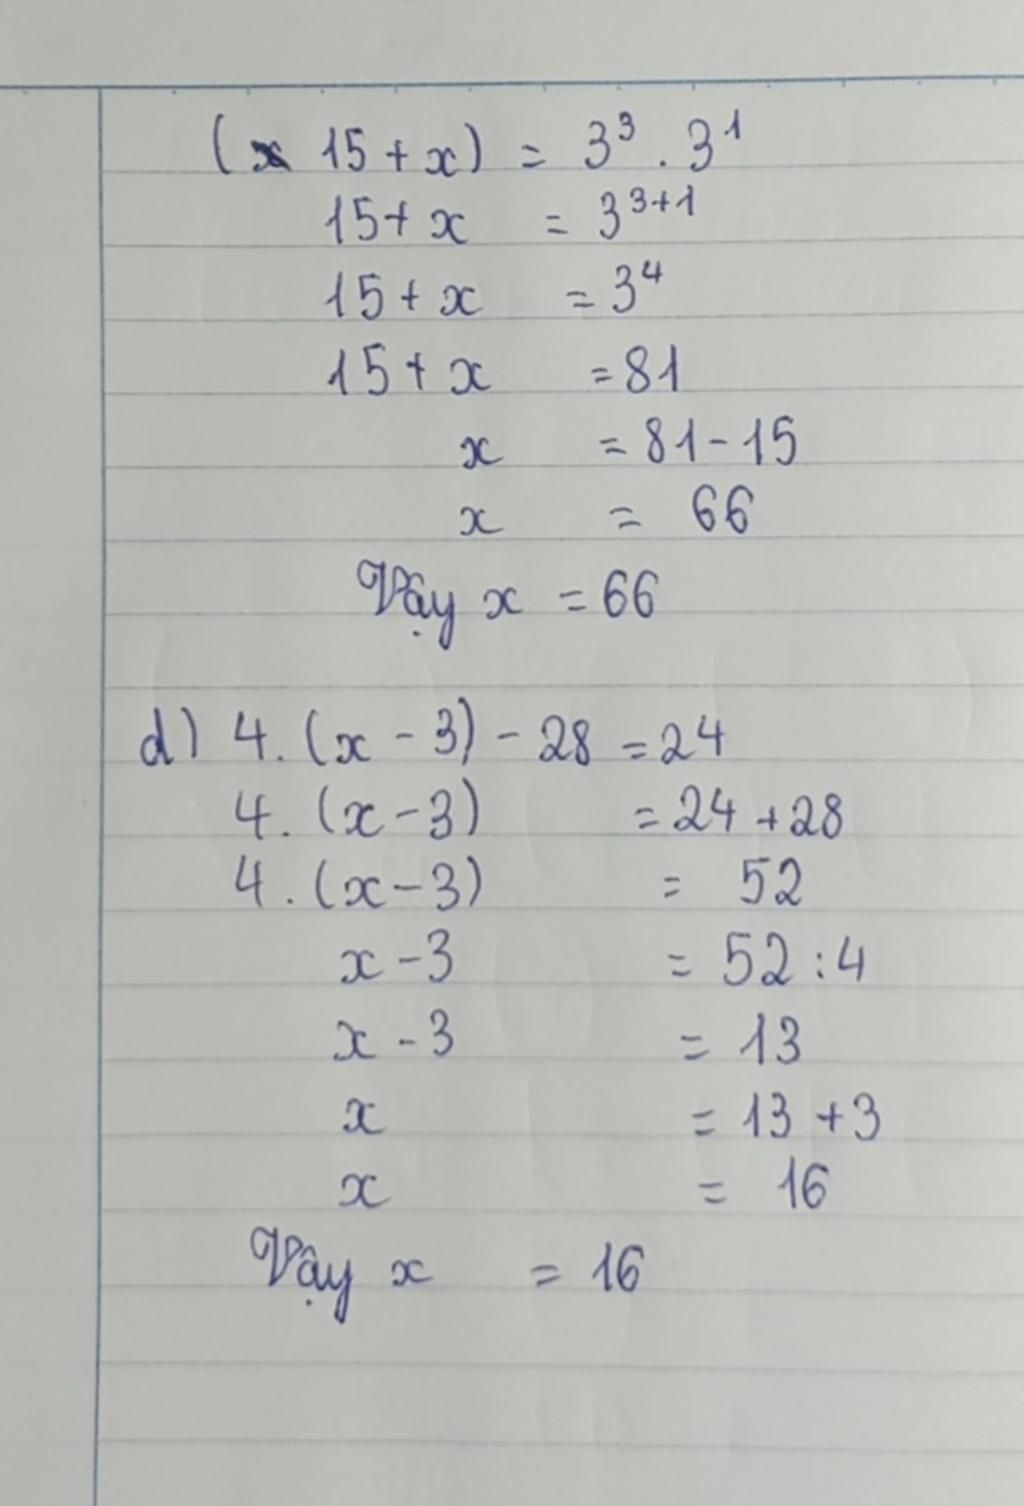 (15 + x) = 3³ . 3¹
15 + x = 3³⁺¹
15 + x = 3⁴
15 + x = 81
x = 81 - 15
x = 66
Vậy x = 66
d) 4. (x - 3) - 28 = 24
4. (x - 3) = 24 + 28
4. (x - 3) = 52
x - 3 = 52 : 4
x - 3 = 13
x = 13 + 3
x = 16
Vậy x = 16